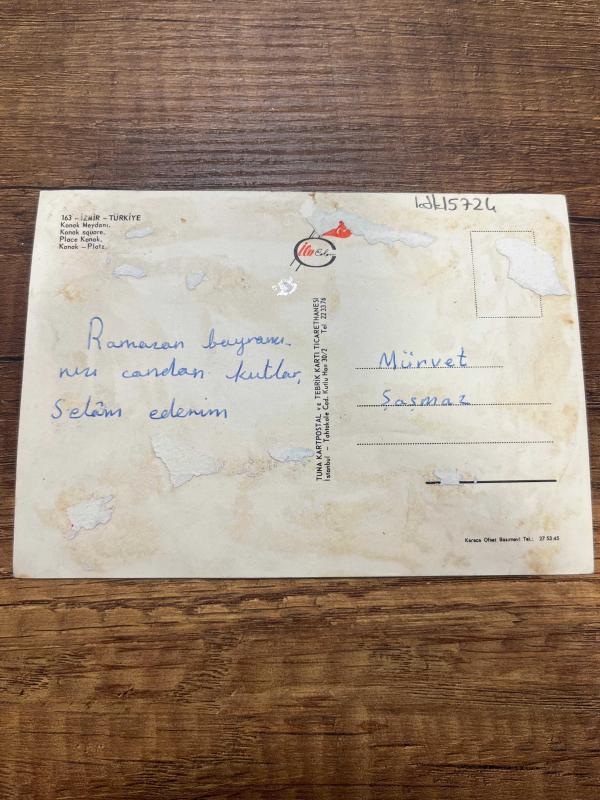 163 - İZMİR - TÜRKİYE
Konak Meydanı.
Konak square.
Place Konak.
Konak - Platz.
Ramazan bayramı-
nızı candan kutlar,
Selâm ederim
TUNA KARTPOSTAL ve TEBRİK KARTI TİCARETHANESİ
İstanbul - Tahtakale Cad. Kutlu Han 30/2 Tel 22 33 76
Mürvet
Şaşmaz
Karaca Ofset Basımevi Tel.: 27 53 45